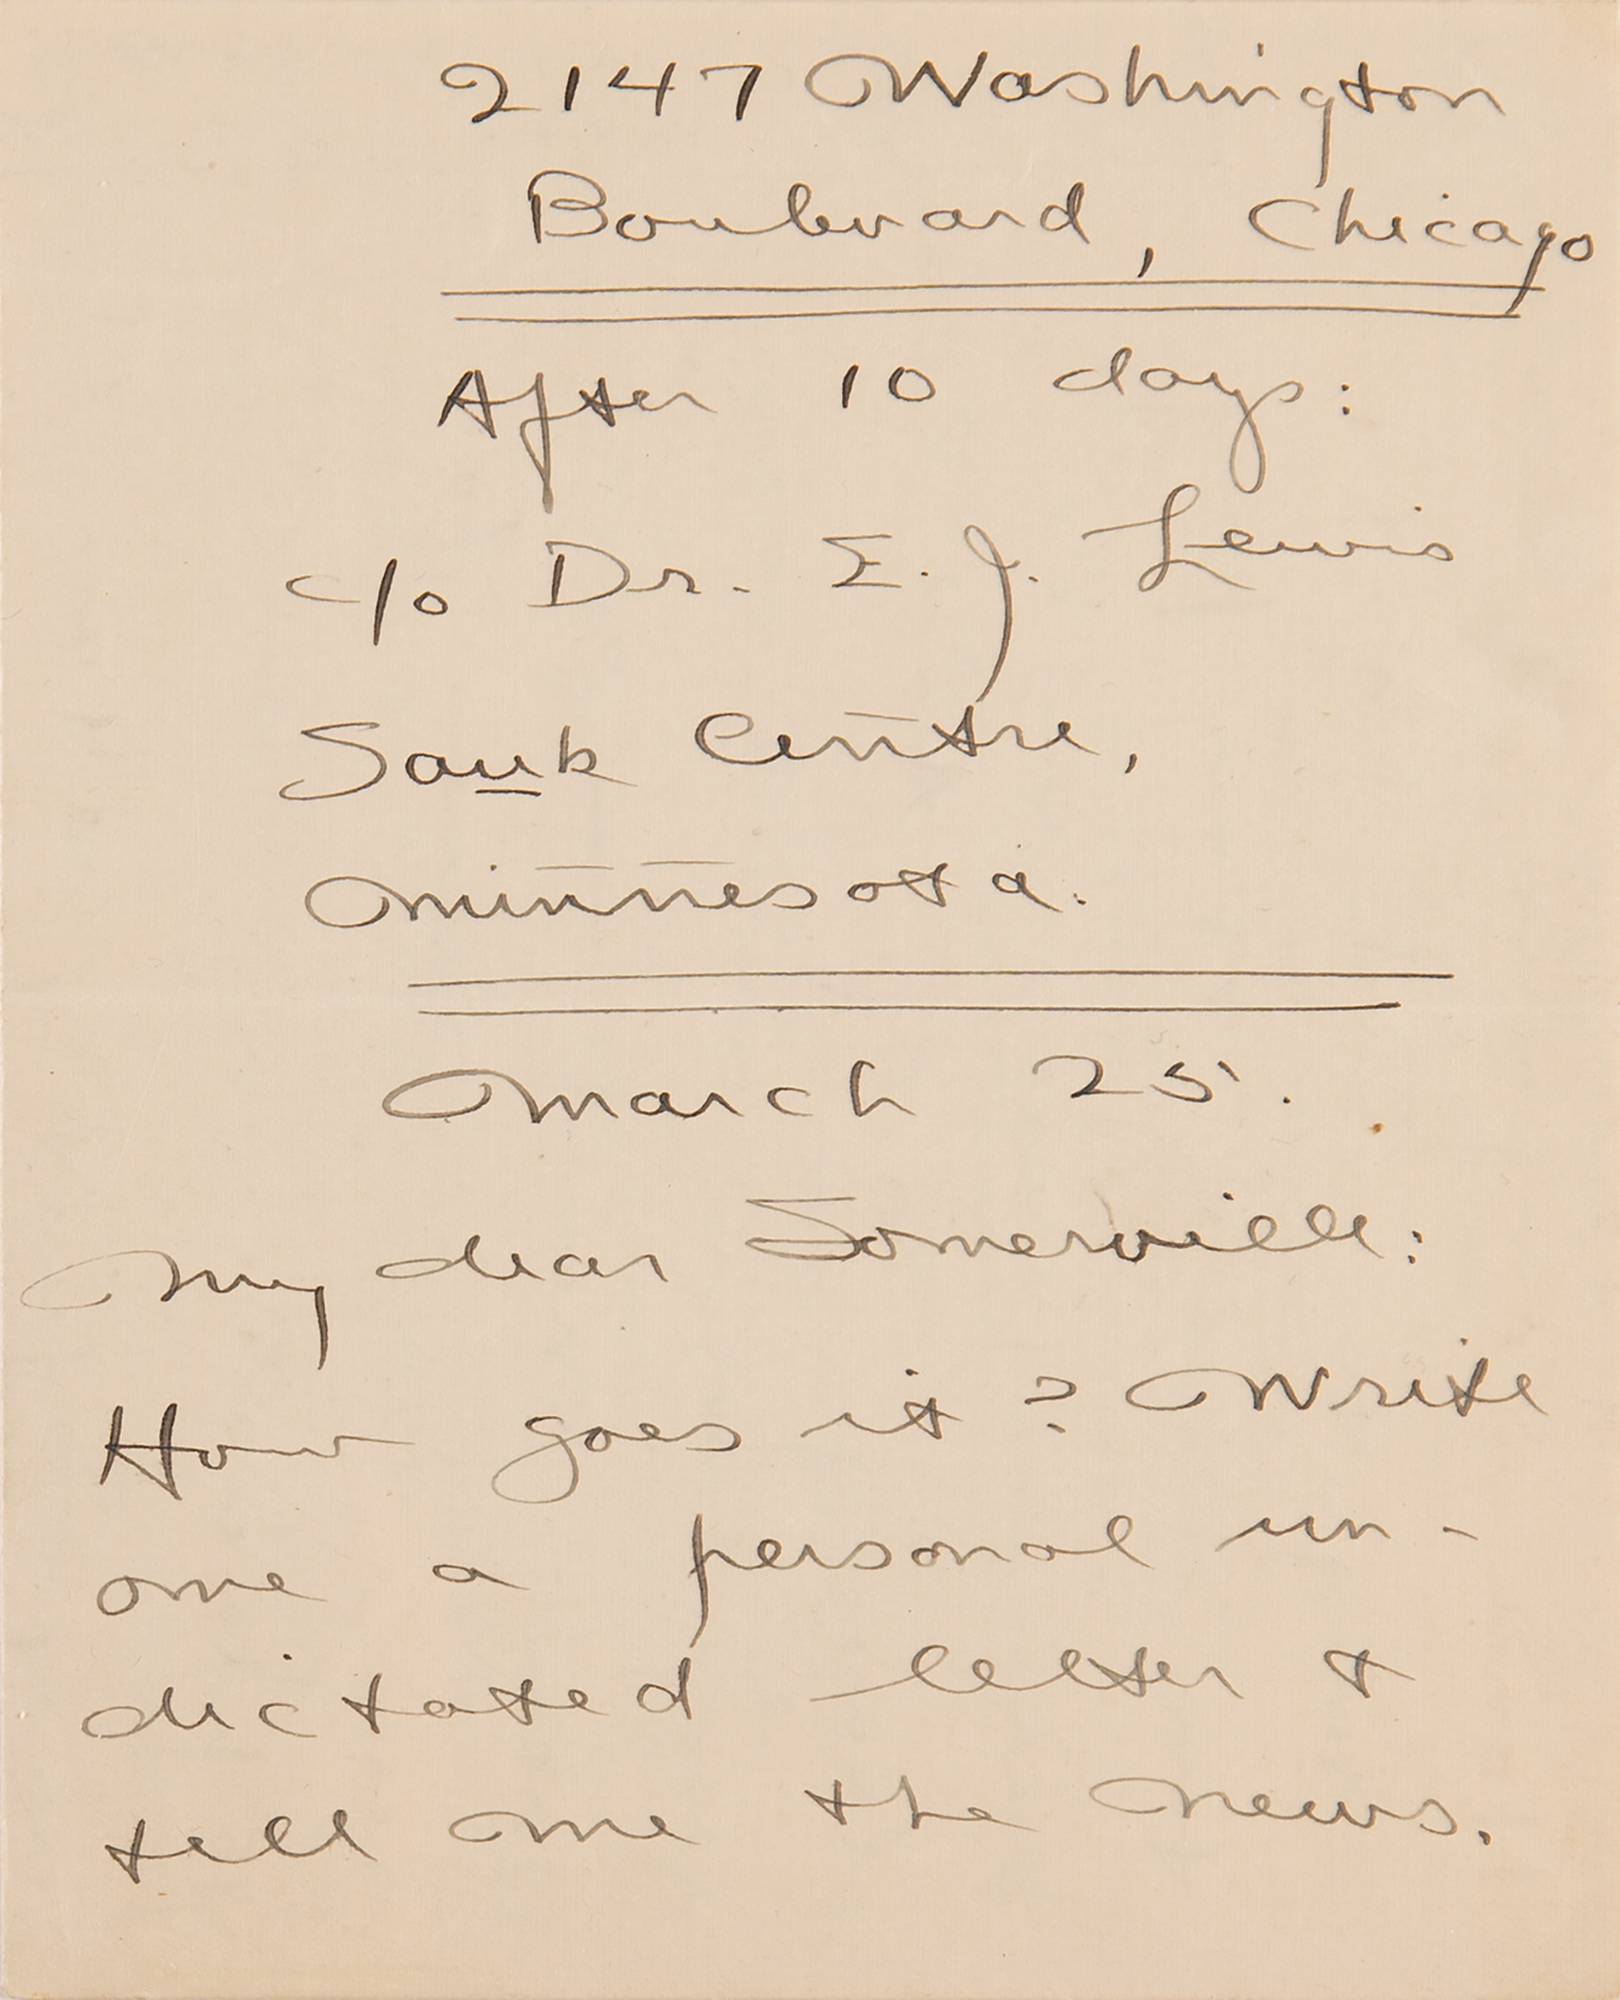 2147 Washington
Boulevard, Chicago
After 10 days:
c/o Dr. E. J. Lewis
Sauk Centre,
Minnesota.
March 25.
My dear Somerville:
How goes it? Write
me a personal un-
dictated letter &
tell me the news.